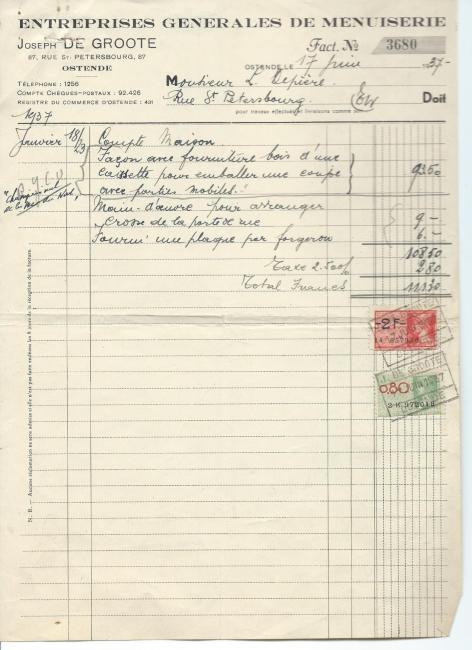 ENTREPRISES GENERALES DE MENUISERIE
JOSEPH DE GROOTE
87, RUE ST. PETERSBOURG, 87
OSTENDE
Fact. No 3680
OSTENDE LE 17 Juin 37-
TÉLÉPHONE : 1256
COMPTE CHÈQUES-POSTAUX : 92.426
REGISTRE DU COMMERCE D'OSTENDE : 431
Monsieur L. Lepière.
Rue St Petersbourg. E/W Doit
pour travaux effectués et livraisons comme suit
1937
Janvier 18/23 Compte Maison.
Façon avec fourniture bois d'une
cassette pour emballer une coupe 93.50
avec parties mobiles.
Main-d'œuvre pour arranger
Crosse de la porte de rue 9.-
Fourni une plaque par forgeron 6.-
108.50
Taxe 2.50% 2.80
Total Francs 111.30
N. B. — Aucune réclamation ne sera admise si elle n'est pas faite endéans les 8 jours de la réception de la facture.
-2F-
J. DE GROOTE
0,80